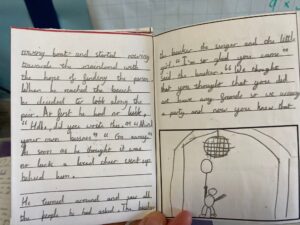 rowing boat and started rowing
towards the mainland with
the hope of finding the person
When he reached the beach
he decided to look along the
pier. At first he had no luck
"Hello, did you write this." "Mind
your own business" "Go away"
As soon as he thought it was
no luck a loud cheer went up
behind him.
He turned around and saw all
the people he had asked. The
the banker the singer and the little
girl "I'm so glad you came"
said the banker. "We thought
that you thought that you did
not have any friends so we
a party and now you know that.